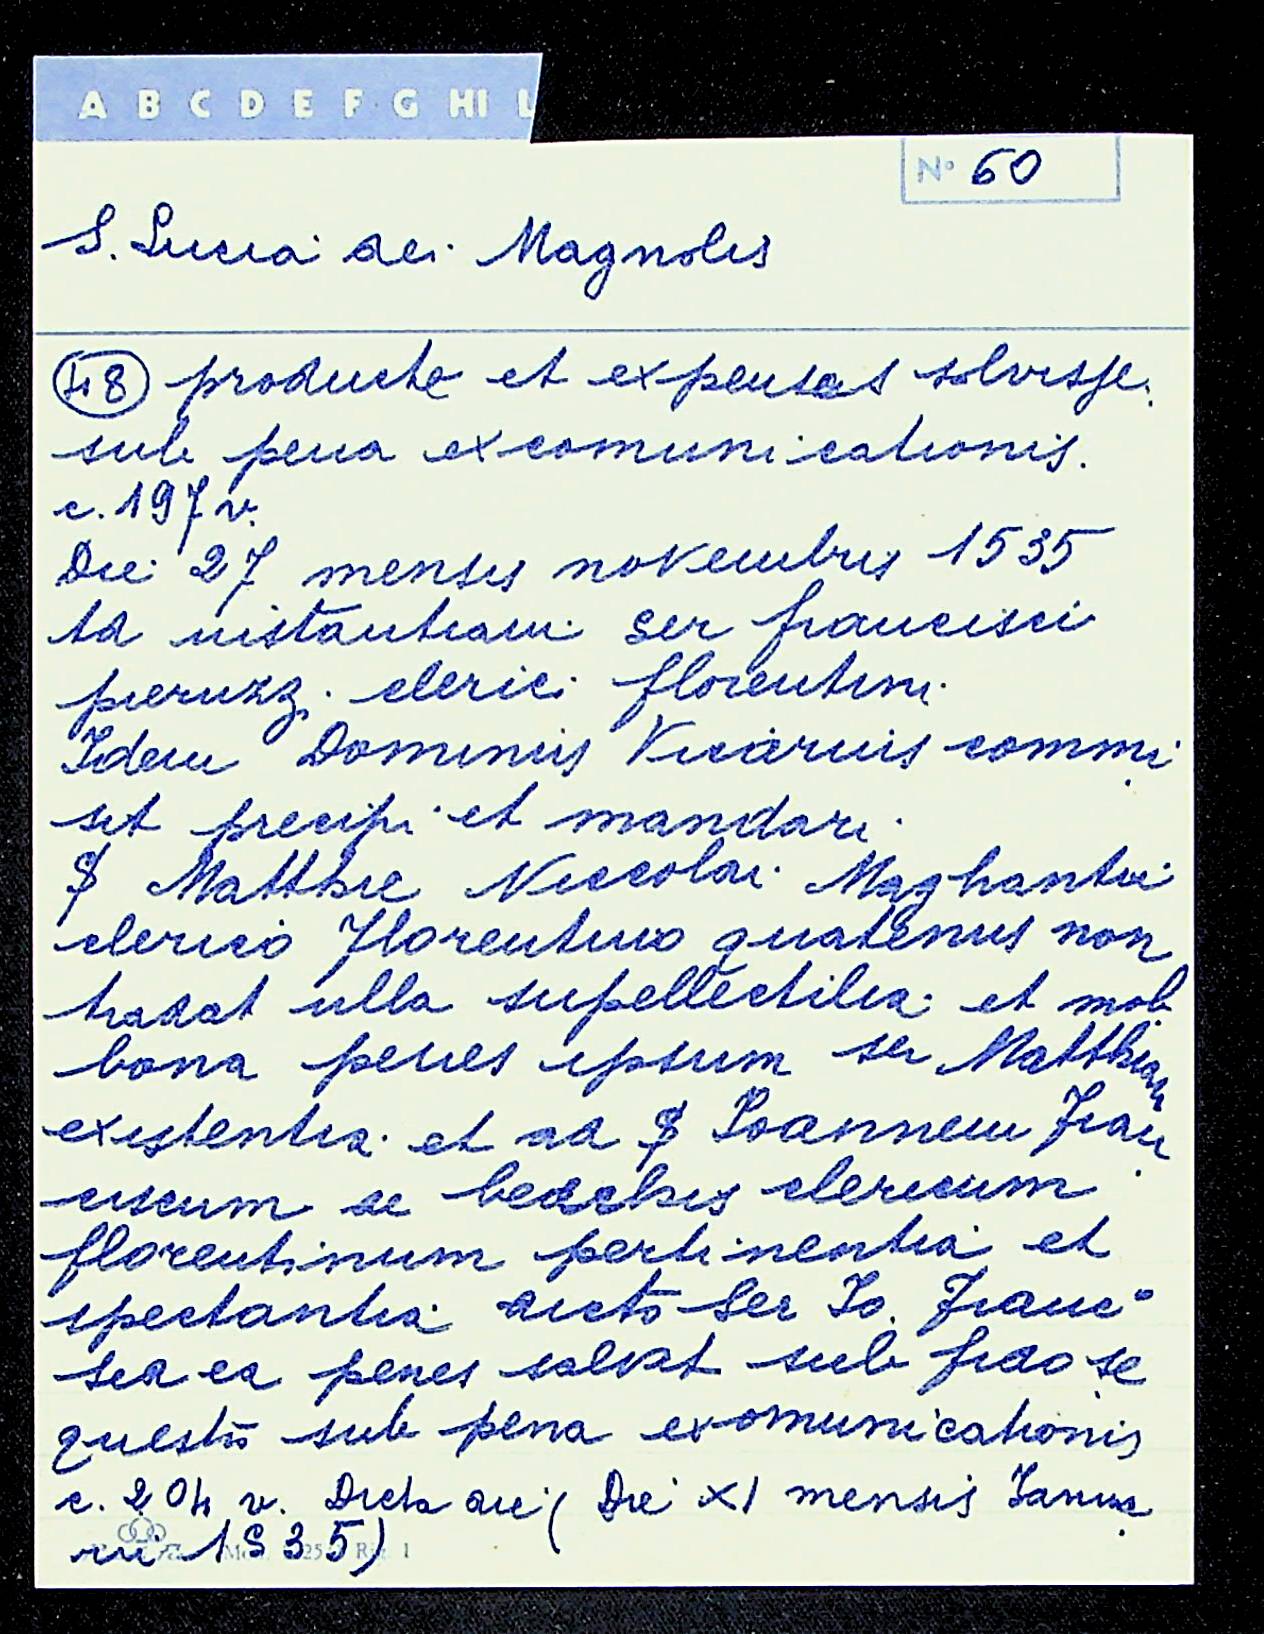 A B C D E F G HI L
N° 60
S. Lucia dei Magnolis
48 producte et expensas solvisse
sub pena excomunicationis.
c. 197 v.
Die 27 mensis novembris 1535
Ad instantiam ser francisci
peruzzi clerici florentini
Idem Dominus Vicarius commi
sit precipi et mandari
$ Matthie Niccolai Maghantii
clerico Florentino quatenus non
tradat ulla supellectilia et mob.
bona penes ipsum ser Matthiam
existentia et ad $ Ioannem Fran
ciscum de becchis clericum
florentinum pertinentia et
spectantia dicto Ser Io. Franc°
sed ea penes salvat sub
questro sub pena excomunicationis
c. 204 v. Dicta die (Die XI mensis Ianua
rii 1535)